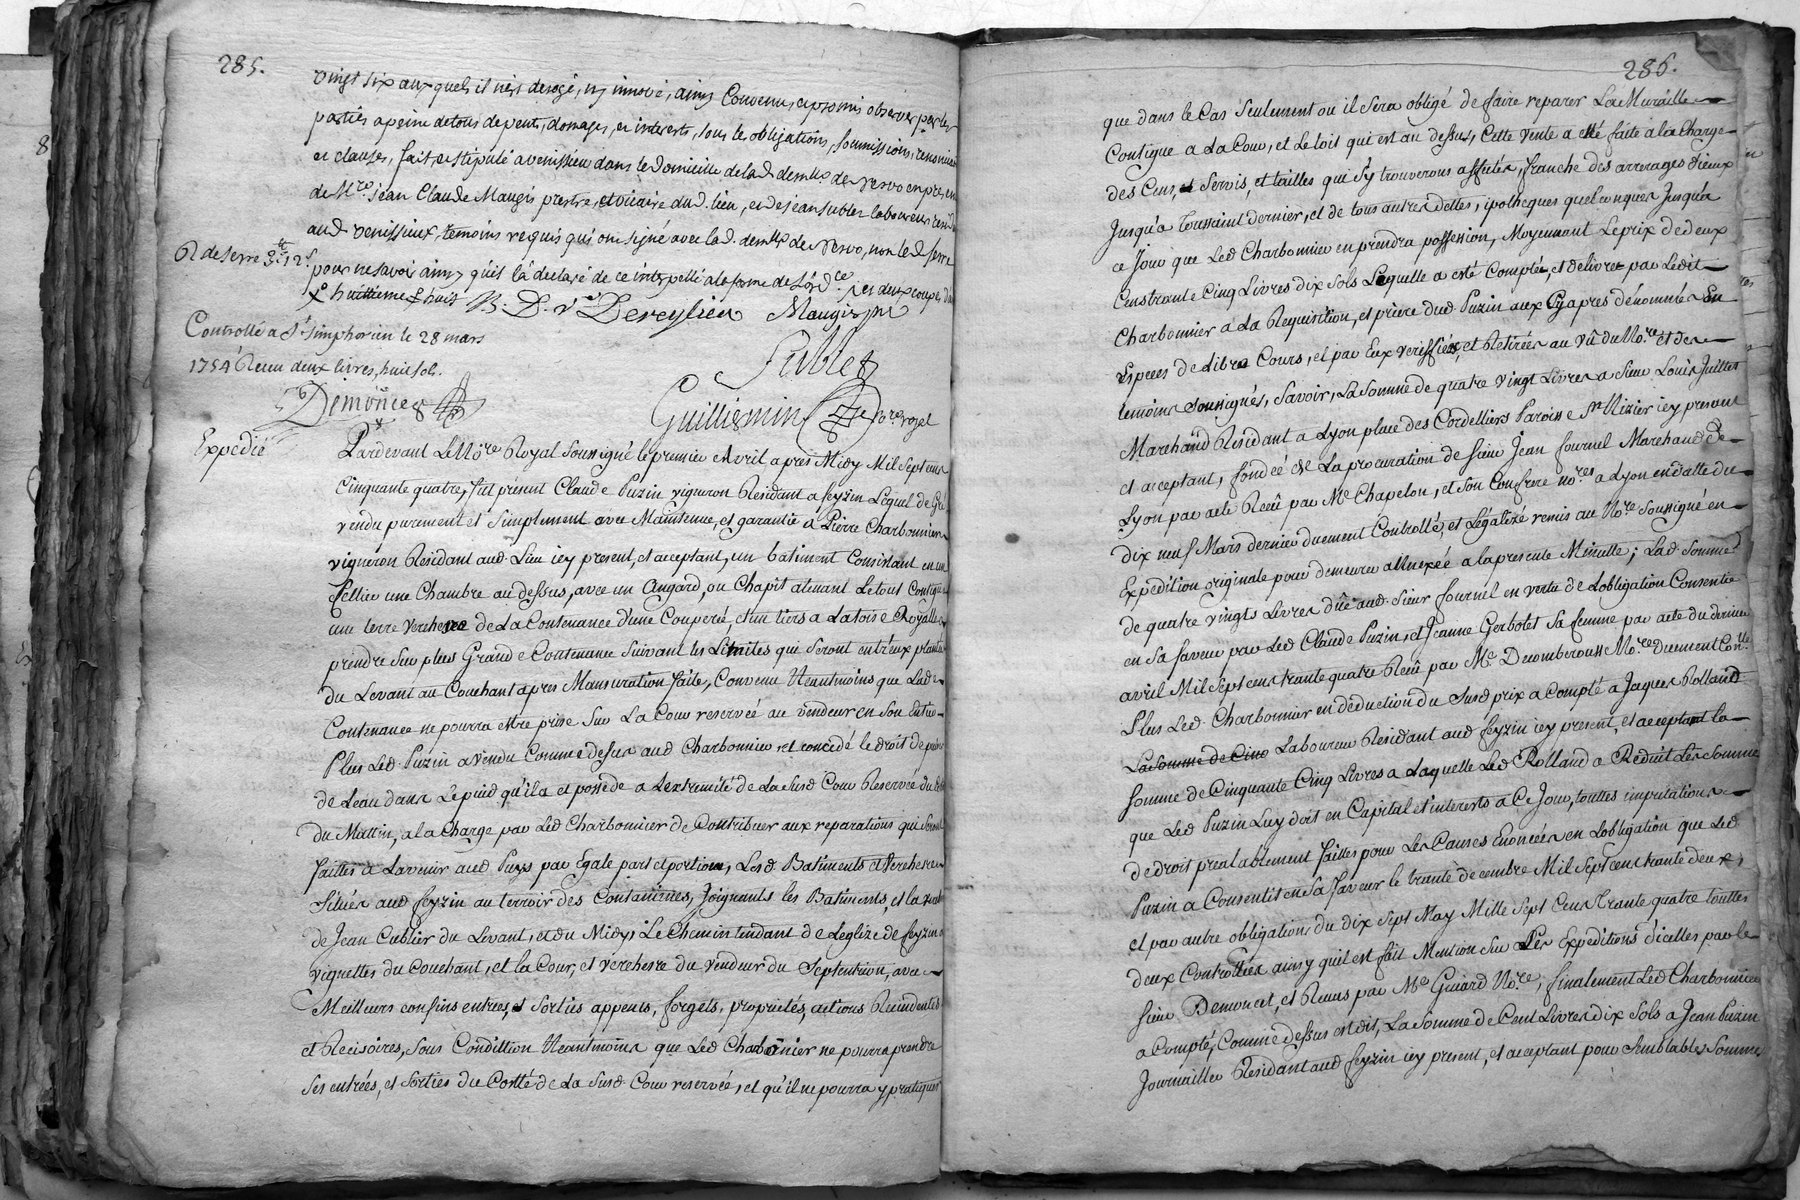 285.
vingt six auxquels il n'est derogé, ny innové, ainsy Convenu, et promis observer par les
parties a peine de tous depents, domages, et interests, sous les obligations, soumissions, renonciaõns
et clauses, fait et stipulé a venissieu dans le domicille de lad. demlle de vervo en pnce, et
de Mre Jean Claude Maugis prestre, et vicaire dud. lieu, et de jean sublet laboureur resid
aud venissieux, temoins requis qui ont signé avec lad. demlle de vervo, non led serre
R de serre 3tt 12s
pour ne savoir ainsy qu'il l'a declaré de ce interpellé a la forme de l'ordce
huittieme huit B. D. Dereyssieu Maugis ptre
Controllé a St Simphorien le 28 mars
1754 Receu deux livres, huit sol.
Demoncet
Sublet
Guilliermin Nre royal
Expedié
Pardevant Le Nore Royal Soussigné le premier Avril apres Midy Mil Sept cent
Cinquante quatre, fut présent Claude Puzin vigneron Residant a feyzin Lequel de Gré
vendu purement et Simplement avec Maintenue, et garantie a Pierre Charbonnier
vigneron Residant aud. Lieu icy present, et acceptant, un batiment Consistant en un
Sellier une Chambre au dessus, avec un Angard, ou Chapit atenant Le tout Contigue
une terre verchere de La Contenance d'une Couperée, et un tiers a La toise Royalle a
prendre Sur plus Grande Contenance Suivant les Limites qui Seront entr'eux plantés
du Levant au Couchant apres Mansuration faite, Convenu Neantmoins que Lade
Contenance ne pourra estre prise Sur La Cour reservée au vendeur en Son entier
Plus Led. Puzin a vendu Comme dessus aud Charbonnier et concedé le droit de puiser
de Leau dans Le puid qu'il a et possede a Lextremité de La Susd. Cour Reservée du Coté
du Mattin, a la Charge par Led Charbonnier de Contribuer aux reparations qui Seront
faittes a Lavenir aud Puys par Egale part et portion, Lesd. Batiments et Verchere
Situés aud feyzin au terroir des Contamines, Joignants les Batiments, et la
de Jean Cublier du Levant, et du Midy, Le Chemin tendant de Leglize de feyzin a
vignettes du Couchant, et la Cour, et verchere du vendeur du Septentrion, avec
Meilleurs confins entrées, et Sorties appents, forgets, propriétés, actions Rescindentes
et Recisoires, Sous Condittion Neantmoins que Led Charbonier ne pourra prendre
Ses entrées, et Sorties du Cotté de La Susd. Cour reservée, et qu'il ne pourra y pratiquer
286.
que dans le Cas Seulement ou il Sera obligé de faire reparer La Muraille
Contigue a La Cour, et Le toit qui est au dessus, Cette vente a esté faite a la Charge
des Cens, et Servis, et tailles qui S'y trouverons affectés, franche des arrerages diceux
Jusqu'a Toussaint dernier, et de tous autres dettes, ipotheques quelconques Jusqu'a
ce Jour que Led Charbonnier en prendra possession, Moyennant Le prix de deux
Cens trante Cinq Livres dix Sols Laquelle a esté Comptée, et délivrée par Ledit
Charbonnier a La Requisition, et priere dud Puzin aux Cyapres dénommés En
Especes de Libre Cours, et par Eux veriffiées, et Retirées au vû du Nore et des
temoins Soussignés, Savoir, La Somme de quatre vingt Livres a Sieur Louis Juillet
Marchand Residant a Lyon place des Cordelliers Paroisse St Nizier icy present
et acceptant, fondé de La procuration de Sieur Jean fournel Marchand de
Lyon par acte Reçû par Me Chapelon, et Son Confrere nores a Lyon en datte du
dix neuf Mars dernier duement Controllé, et Légalizé remis au Nore Soussigné en
Expedition originale pour demeurer annexée a la presente Minutte; Lad Somme
de quatre vingts Livres düe aud Sieur fournel en vertu de Lobligation Consentie
en Sa faveur par Led Claude Puzin, et Jeanne Gerbolet Sa femme par acte du dernier
avril Mil Sept cens trante quatre Reçû par Me Decomberousse Nore duement Conllé
Plus Led Charbonnier en déduction du Susd prix a compté a Jaques Rolland
La Somme de Cinq Laboureur Residant aud feyzin icy present, et acceptant la
Somme de Cinquante Cinq Livres a Laquelle Led Rolland a Réduit Les Somme
que Led Puzin Luy doit en Capital et interests a Ce Jour, touttes imputations
de droit prealablement faittes pour Les Causes Enoncées en Lobligation que Led
Puzin a Consentit en Sa faveur le trante décembre Mil Sept cens trante deux,
et par autre obligation du dix Sept May Mille Sept Cens Trante quatre touttes
deux Controllées ainsy quil est fait Mention Sur Les Expeditions d'icelles par le
Sieur Demoncet, et Reçus par Me Guiard Nore, finalement Led Charbonnier
a Compté, Comme dessus est dit, La Somme de Cent Livres dix Sols a Jean Puzin
Journallier Residant aud feyzin icy present, et acceptant pour Semblable Somme